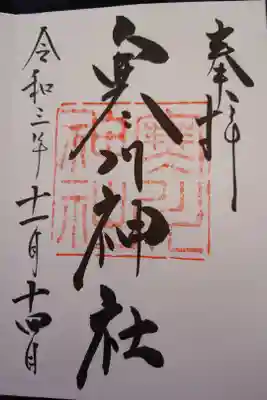 奉拝
寒川神社
令和三年十一月十四日
寒川
神社